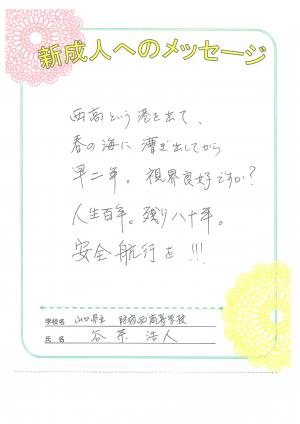 新成人へのメッセージ
西高という港を出て、
春の海に漕ぎ出してから
早二年。視界良好ですか?
人生百年。残り八十年。
安全航行を!!!
学校名 山口県立 防府西高等学校
氏名 谷 浩人